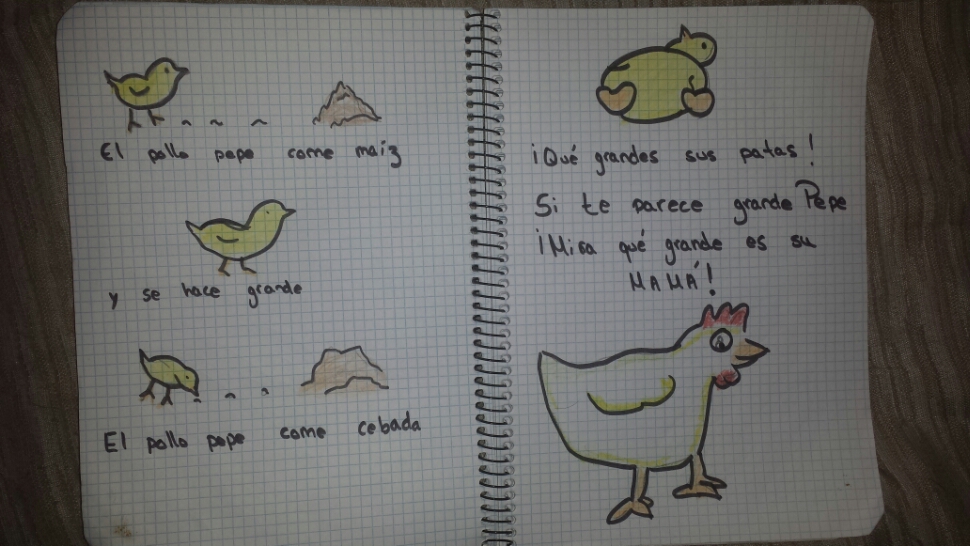 El pollo pepe come maíz
y se hace grande
El pollo pepe come cebada
¡Qué grandes sus patas!
Si te parece grande Pepe
¡Mira qué grande es su
MAMÁ!